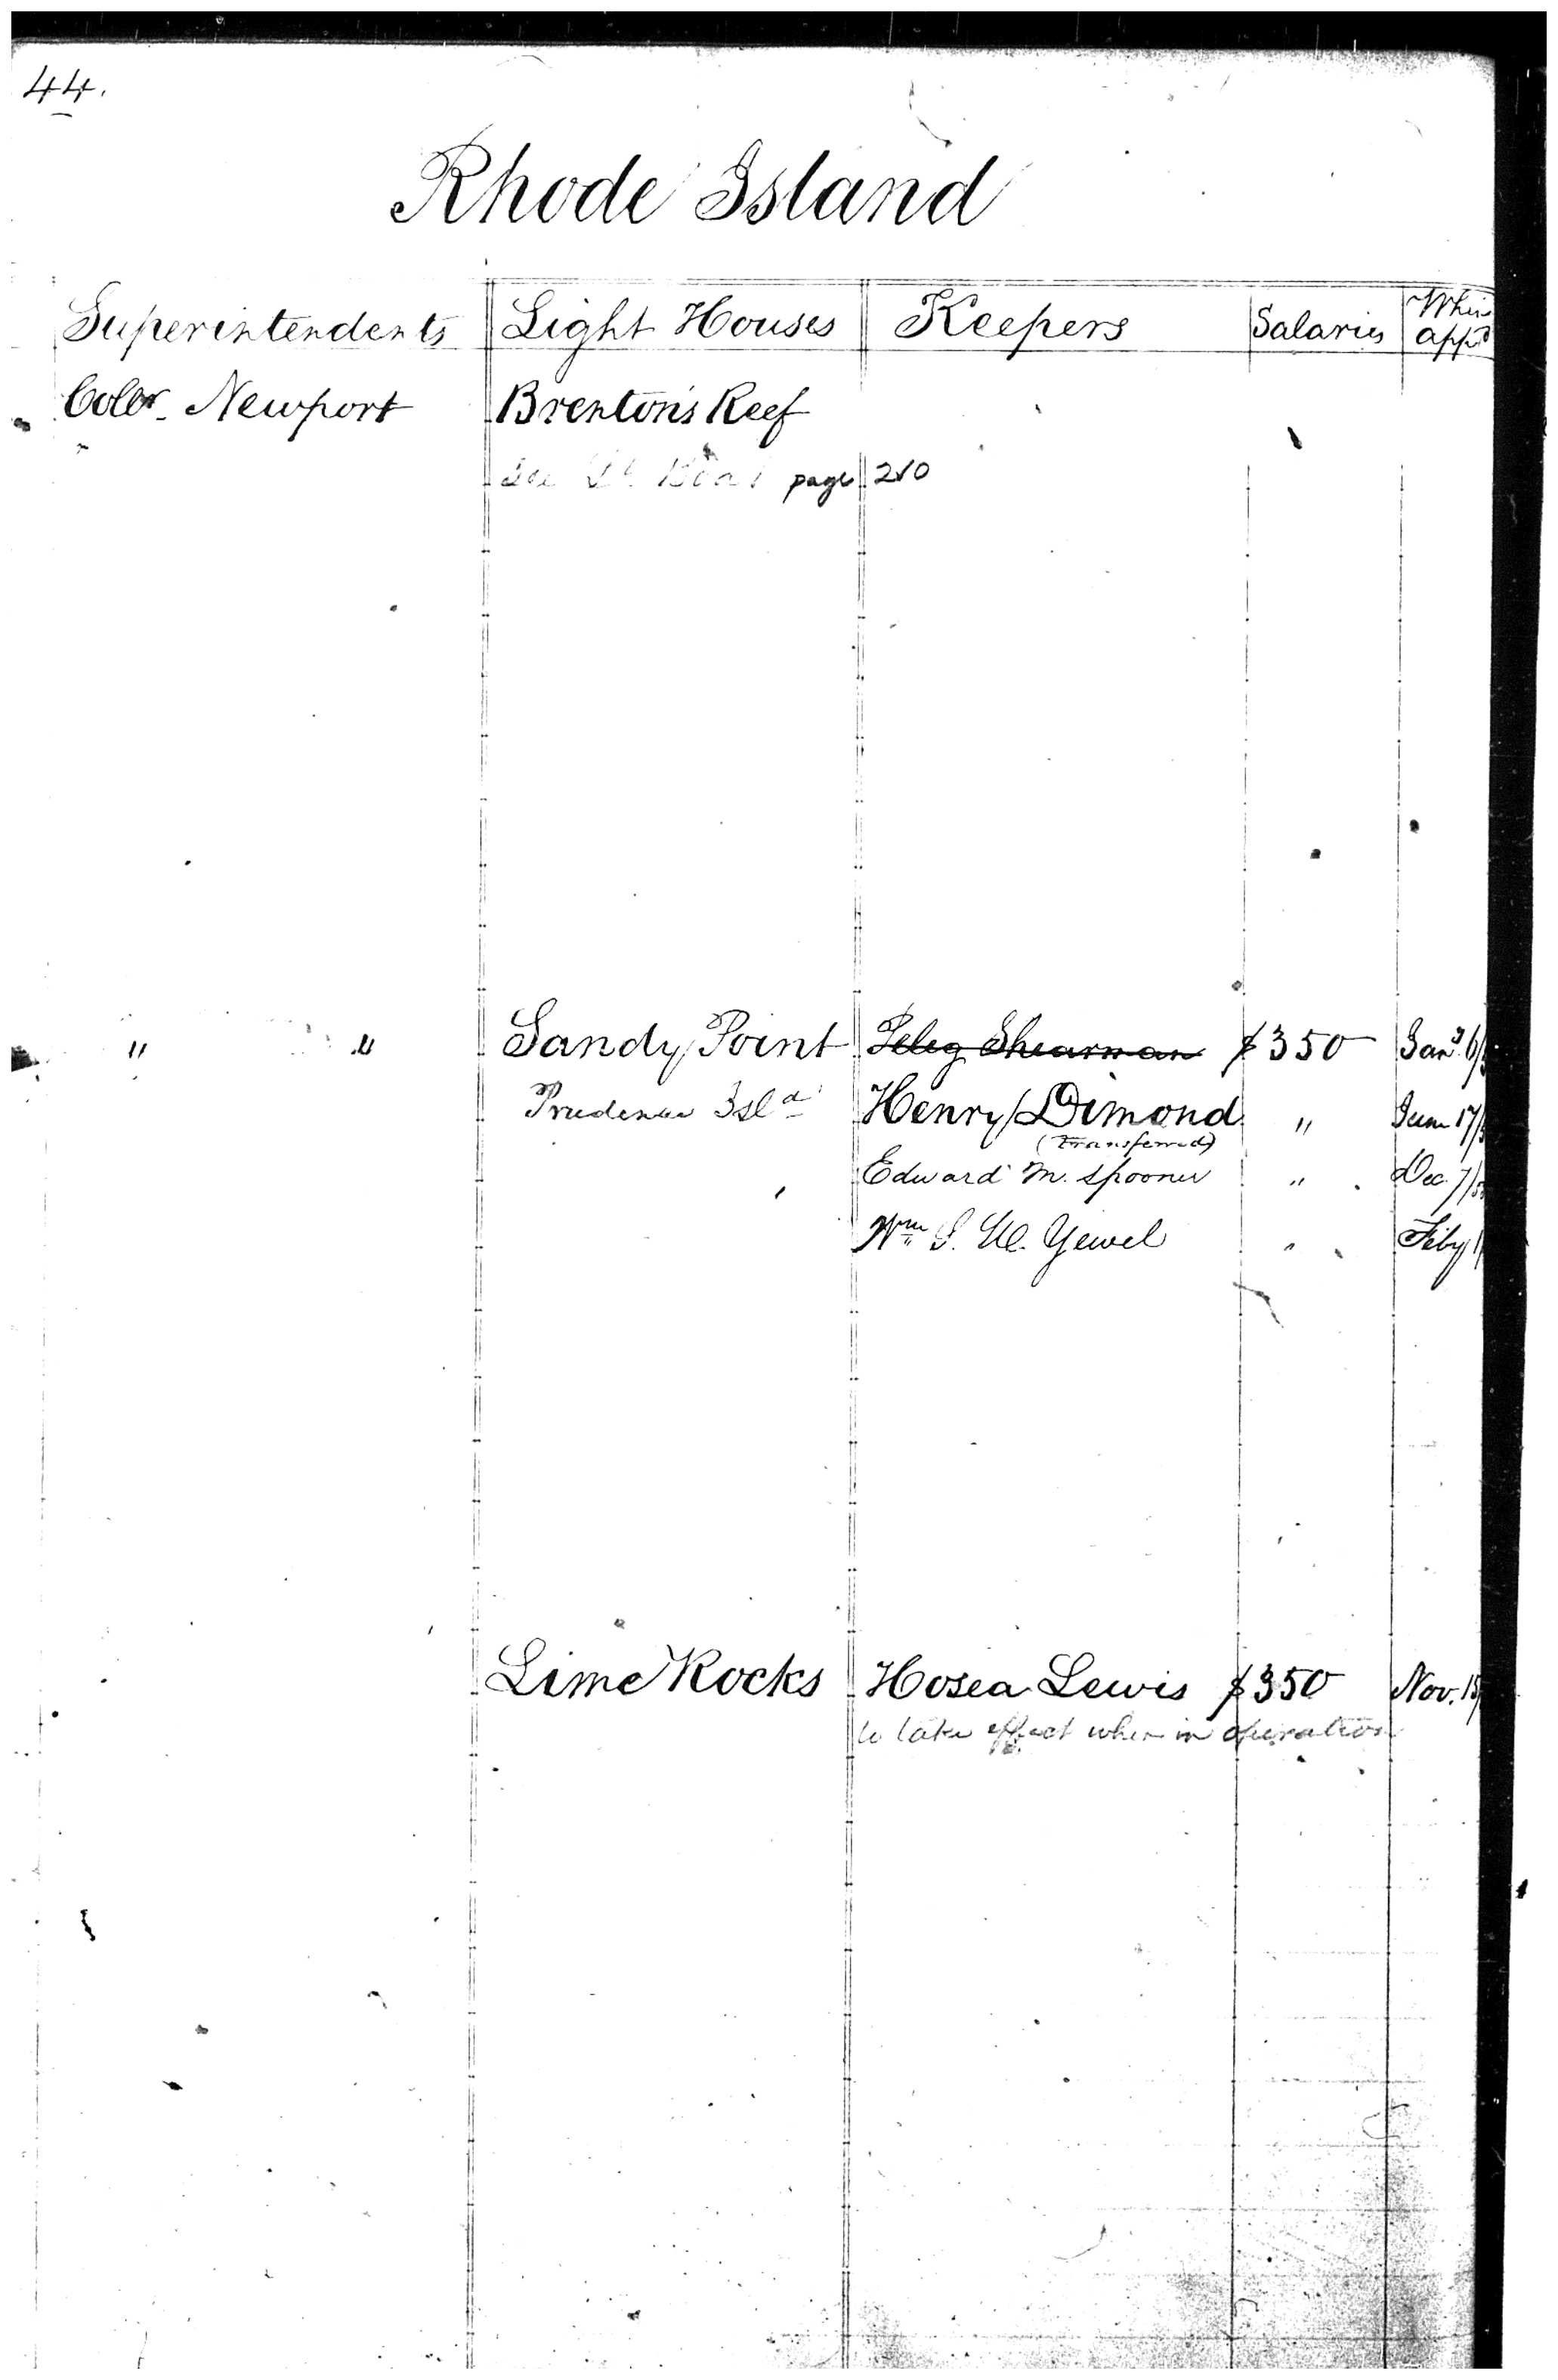 44.
Rhode Island
Superintendents Light Houses Keepers Salaries When app'd
Collr. Newport Brenton's Reef
See Lt. Boat page 210
" " Sandy Point Peleg Shearman $350 Jany. 6/
Prudence Isld Henry Dimond " June 17/
(transferred)
Edward M. Spooner " Dec 7/
Wm " Feby 1
Lime Rocks Hosea Lewis $350 Nov. 15/
to take effect when in operation